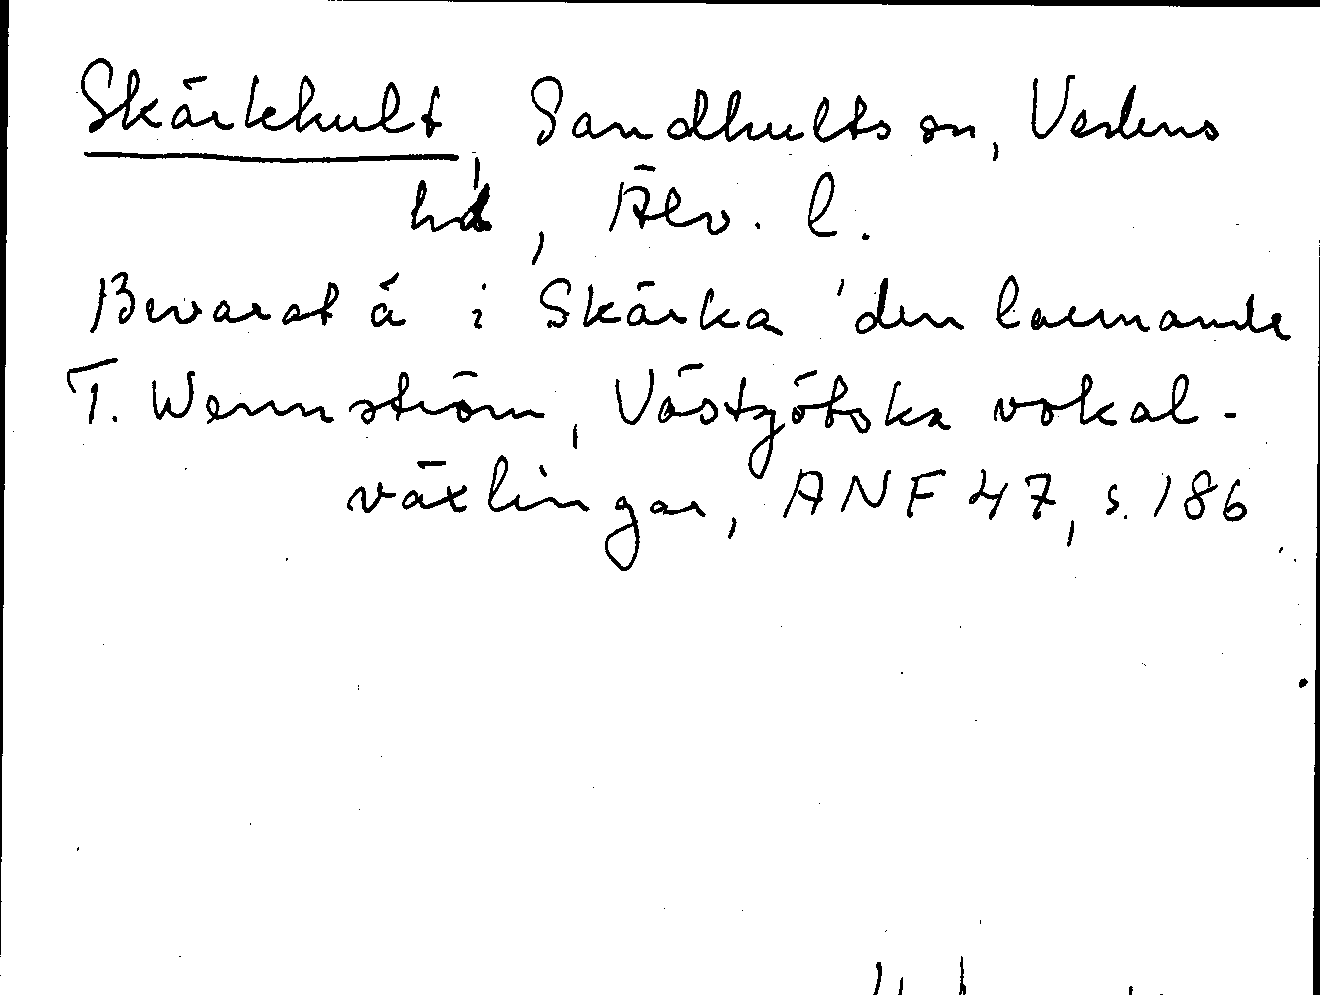 Skärkhult, Sandhults sn, Vedens
hd, Älv. l.
Bevarat ä i Skärka 'den larmande
T. Wennström, Västgötska vokal-
växlingar, ANF 47, s. 186